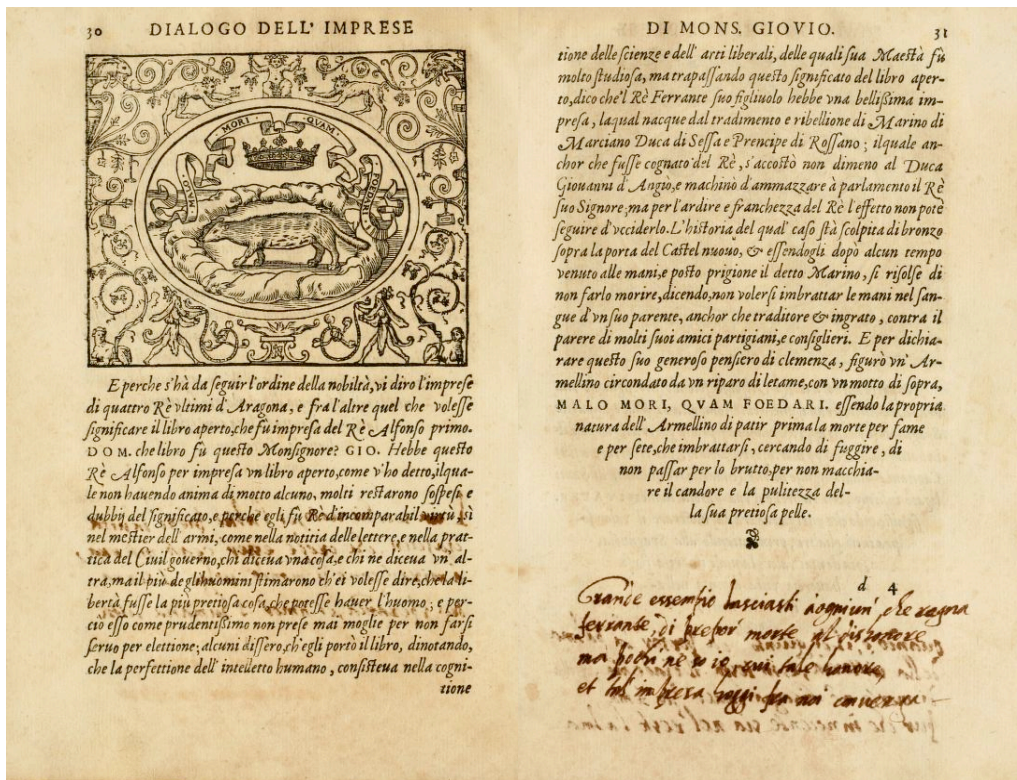 30 DIALOGO DELL' IMPRESE
MALO
MORI · QVAM ·
FOEDARI
E perche s'hà da seguir l'ordine della nobiltà, vi diro l'imprese
di quattro Rè vltimi d'Aragona, e fra l'altre quel che volesse
significare il libro aperto, che fù impresa del Rè Alfonso primo.
DOM. che libro fù questo Monsignore? GIO. Hebbe questo
Rè Alfonso per impresa vn libro aperto, come v'ho detto, ilqua-
le non hauendo anima di motto alcuno, molti restarono sospesi e
dubbij del significato, e perche egli fù Rè d'incomparabil virtù, sì
nel mestier dell'armi, come nella notitia delle lettere, e nella prat-
tica del Ciuil gouerno, chi diceua vna cosa, e chi ne diceua vn'al-
tra, ma il più degli huomini stimarono ch'ei volesse dire, che la li-
bertà fusse la più pretiosa cosa, che potesse hauer l'huomo; e per-
ciò esso come prudentissimo non prese mai moglie per non farsi
seruo per elettione; alcuni dissero, ch'egli portò il libro, dinotando,
che la perfettione dell'intelletto humano, consisteua nella cogni-
tione
DI MONS. GIOVIO. 31
tione delle scienze e dell'arti liberali, delle quali sua Maestà fù
molto studiosa, ma trapassando questo significato del libro aper-
to, dico che'l Rè Ferrante suo figliuolo hebbe vna bellissima im-
presa, laqual nacque dal tradimento e ribellione di Marino di
Marciano Duca di Sessa e Prencipe di Rossano; ilquale an-
chor che fusse cognato del Rè, s'accostò non dimeno al Duca
Giouanni d'Angiò, e machinò d'ammazzare à parlamento il Rè
suo Signore; ma per l'ardire e franchezza del Rè l'effetto non potè
seguire d'vcciderlo. L'historia del qual caso stà scolpita di bronzo
sopra la porta del Castel nuouo, & essendogli dopò alcun tempo
venuto alle mani, e posto prigione il detto Marino, si risolse di
non farlo morire, dicendo, non volersi imbrattar le mani nel san-
gue d'vn suo parente, anchor che traditore & ingrato, contra il
parere di molti suoi amici partigiani, e consiglieri. E per dichia-
rare questo suo generoso pensiero di clemenza, figurò vn'Ar-
mellino circondato da vn riparo di letame, con vn motto di sopra,
MALO MORI, QVAM FOEDARI. essendo la propria
natura dell'Armellino di patir prima la morte per fame
e per sete, che imbrattarsi, cercando di fuggire, di
non passar per lo brutto, per non macchia-
re il candore e la pulitezza del-
la sua pretiosa pelle.
d 4
Grande essempio lasciasti
ferrante di prepor morte al dishonore
ma
et tal impresa hoggi fra noi